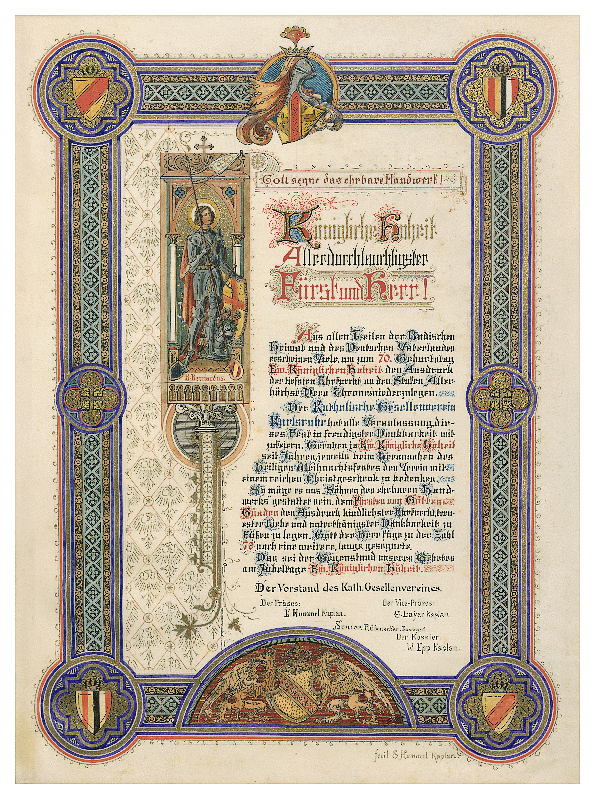 Gott segne das ehrbare Handwerk!
Königliche Hoheit
Allerdurchlauchtigster
Fürst und Herr!
Aus allen Teilen der Badischen
Heimat und des Deutschen Vaterlandes
erscheinen Viele, um zum 70. Geburtstag
Ew. Königlichen Hoheit den Ausdruck
der tiefsten Ehrfurcht an den Stufen Aller-
höchst Dero Thrones niederzulegen.
Der Katholische Gesellenverein
Karlsruhe hat alle Veranlassung, die-
ses Fest in freudigster Dankbarkeit mit-
zufeiern. Ew. Königliche Hoheit
seit Jahren jeweils beim Herannahen des
Heiligen Weihnachtsfestes den Verein mit
einem reichen Christgeschenk zu bedenken.
So möge es uns Söhnen des ehrbaren Hand-
werks gestattet sein, dem Fürsten von Gottes
Gnaden den Ausdruck kindlichster Ehrfurcht, treu-
ester Liebe und unterthänigster Dankbarkeit zu
Füßen zu legen. Gott der Herr füge zu der Zahl
70 noch eine weitere, lange gesegnete.
Das sei der Gegenstand unseres Gebetes
am Jubeltage Ew. Königlichen Hoheit.
Der Vorstand des Kath. Gesellenvereines.
Der Präses: Der Vice-Präses:
Hummel Kaplan. Kaplan
Senior
Der Kassier
W. Epp Kaplan.
S. Bernardus.
fecit S. Hummel Kaplan